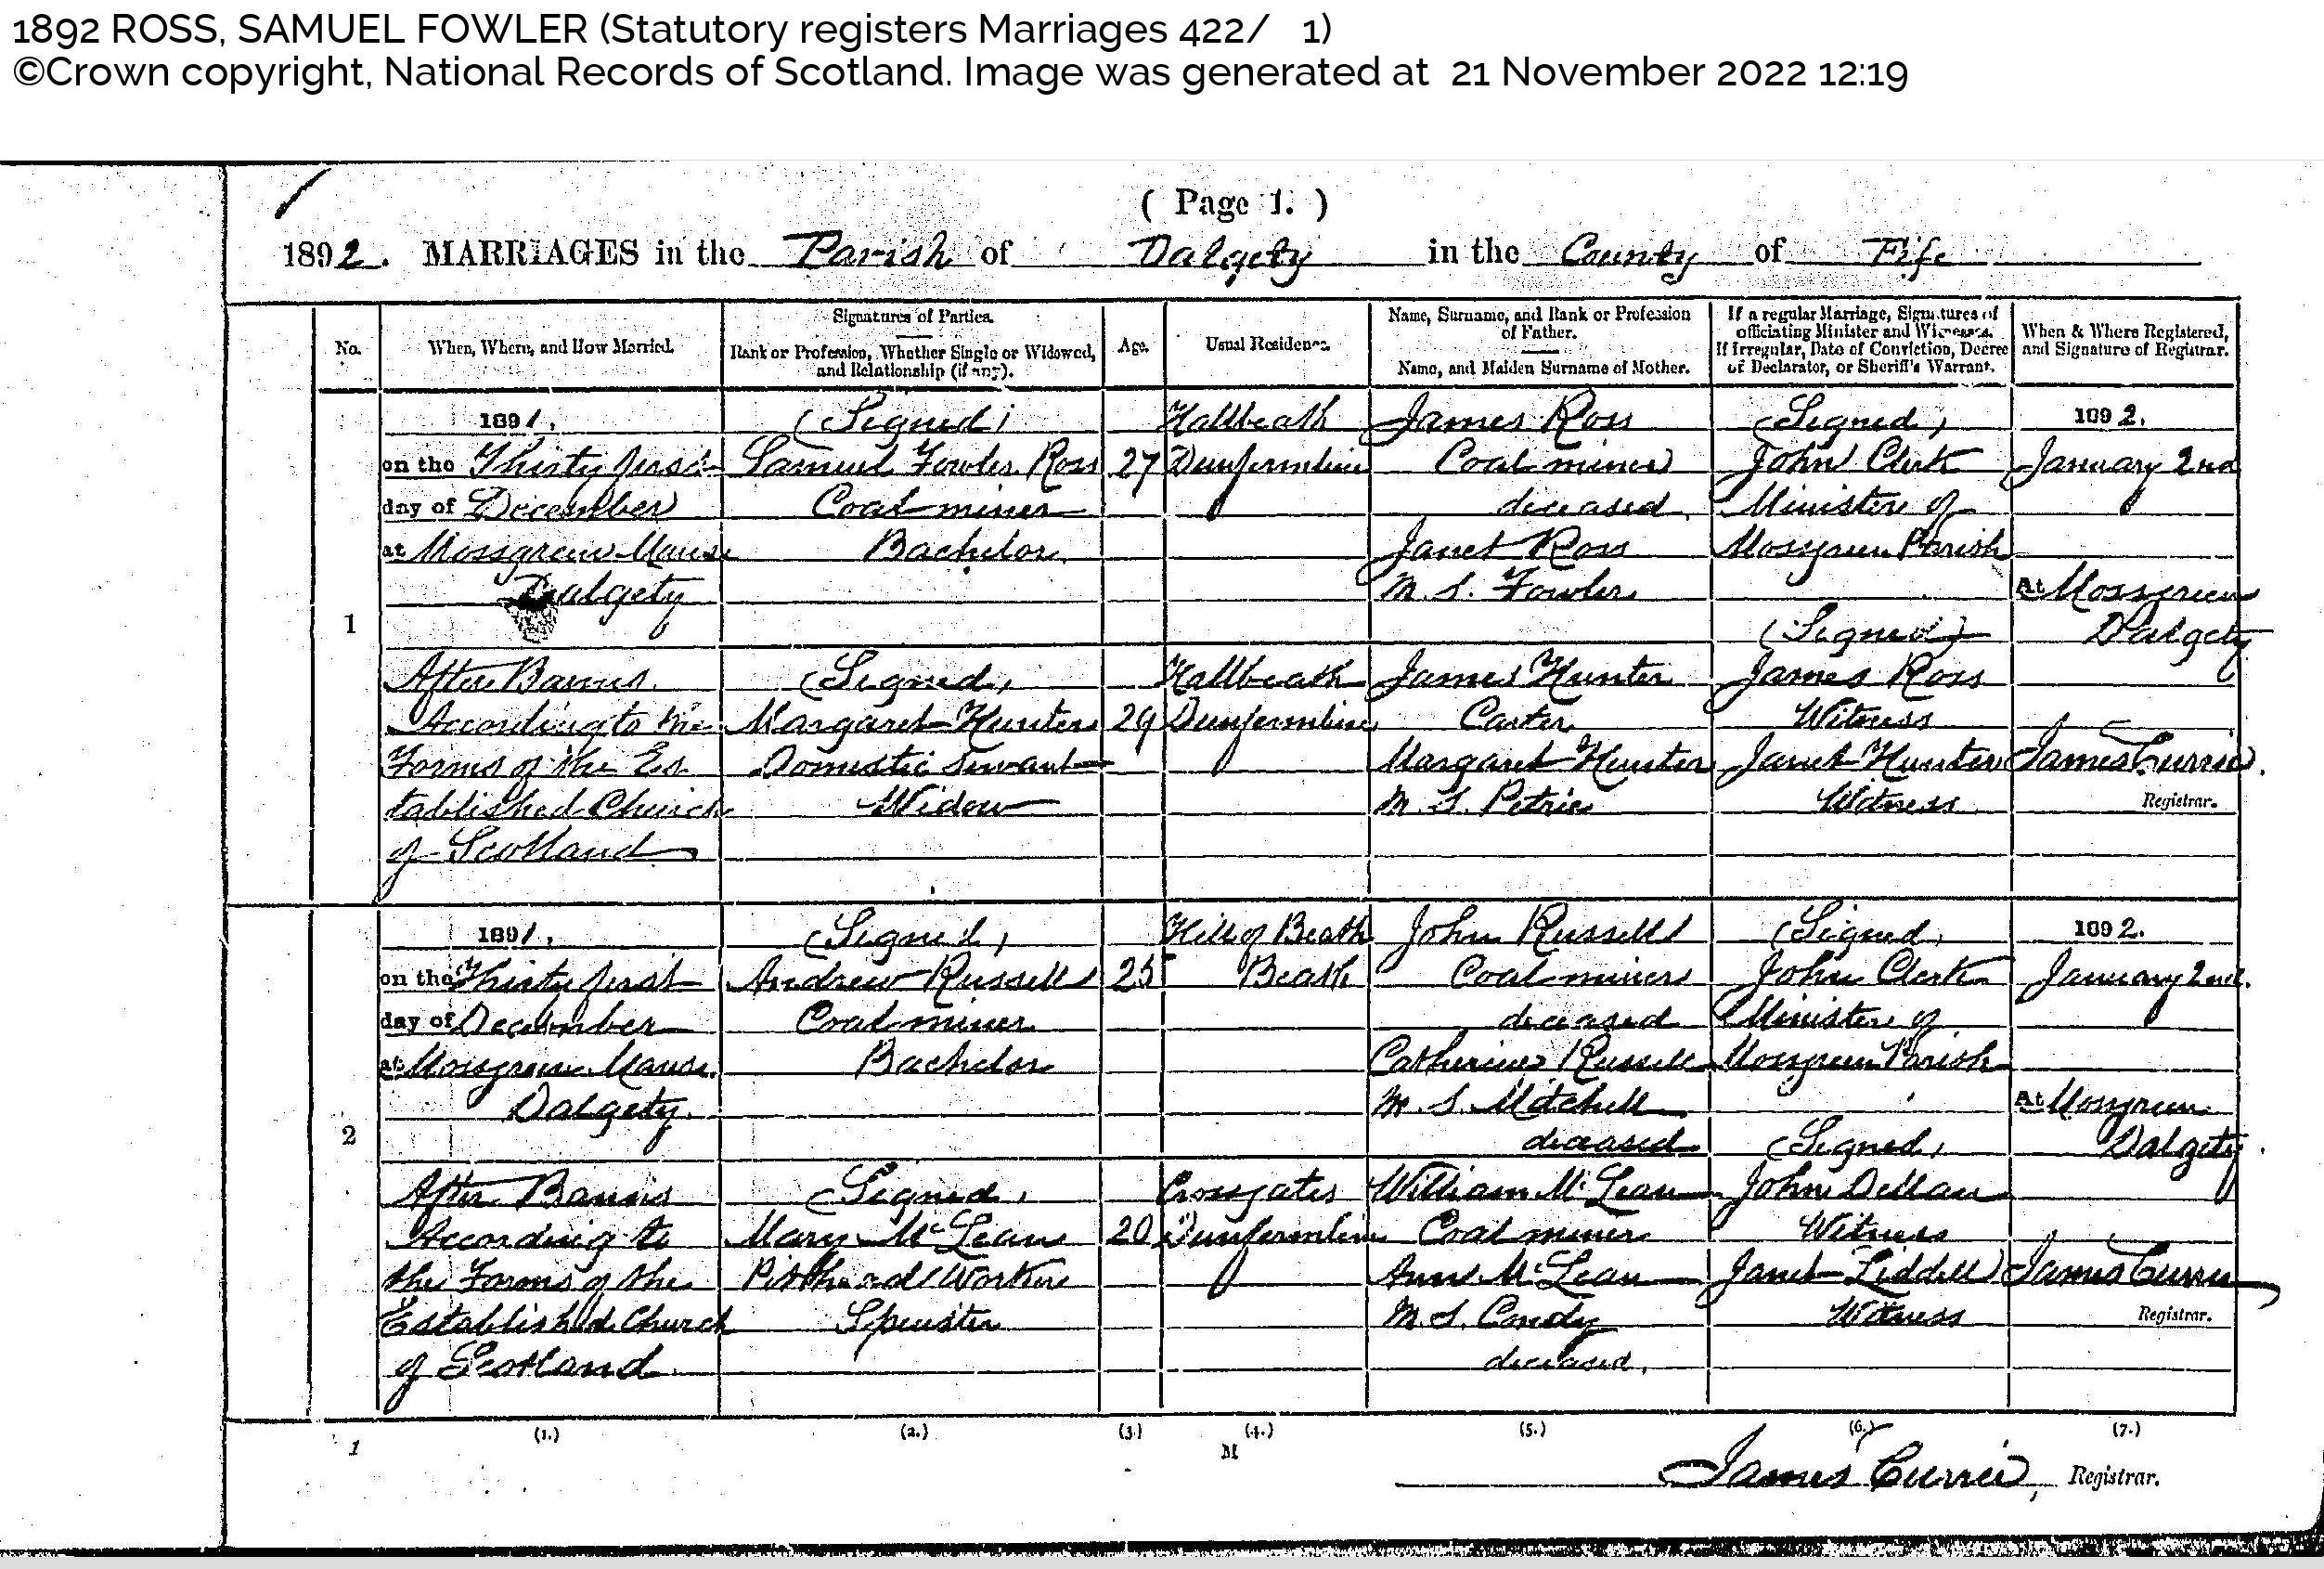 1892 ROSS, SAMUEL FOWLER (Statutory registers Marriages 422/ 1)
©Crown copyright, National Records of Scotland. Image was generated at 21 November 2022 12:19
( Page 1. )
1892. MARRIAGES in the Parish of Dalgety in the County of Fife
No.
When, Where, and How Married.
Signatures of Parties.
Rank or Profession, Whether Single or Widowed,
and Relationship (if any).
Age.
Usual Residence.
Name, Surname, and Rank or Profession
of Father.
Name, and Maiden Surname of Mother.
If a regular Marriage, Signatures of
officiating Minister and Witnesses.
If Irregular, Date of Conviction, Decree
of Declarator, or Sheriff's Warrant.
When & Where Registered,
and Signature of Registrar.
1
1891,
on the Thirty first
day of December
at Mossgreen Manse
Dalgety
After Banns
According to the
Forms of the Es
tablished Church
of Scotland
(Signed)
Samuel Fowler Ross
Coal miner
Bachelor
(Signed)
Margaret Hunter
Domestic Servant
Widow
27
29
Hallbeath
Dunfermline
Hallbeath
Dunfermline
James Ross
Coal miner
deceased
Janet Ross
M. S. Fowler
James Hunter
Carter
Margaret Hunter
M. S. Petrie
(Signed)
John Clerk
Minister of
Mossgreen Parish
(Signed)
James Ross
Witness
Janet Hunter
Witness
1892.
January 2nd
At Mossgreen
Dalgety
James Currie
Registrar.
2
1891,
on the Thirty first
day of December
at Mossgreen Manse
Dalgety.
After Banns
According to
the Forms of the
Established Church
of Scotland
(Signed)
Andrew Russell
Coal miner
Bachelor
(Signed)
Mary McLean
Pithead Worker
Spinster
25
20
Hill of Beath
Beath
Crossgates
Dunfermline
John Russell
Coal miner
deceased
Catherine Russell
M. S. Mitchell
deceased
William McLean
Coal miner
Ann McLean
M. S. Condy
deceased.
(Signed)
John Clerk
Minister of
Mossgreen Parish
(Signed)
John
Witness
Janet Liddell
Witness
1892.
January 2nd.
At Mossgreen
Dalgety
James Currie
Registrar.
(1.) (2.) (3.) (4.) (5.) (6.) (7.)
1 M
James Currie, Registrar.